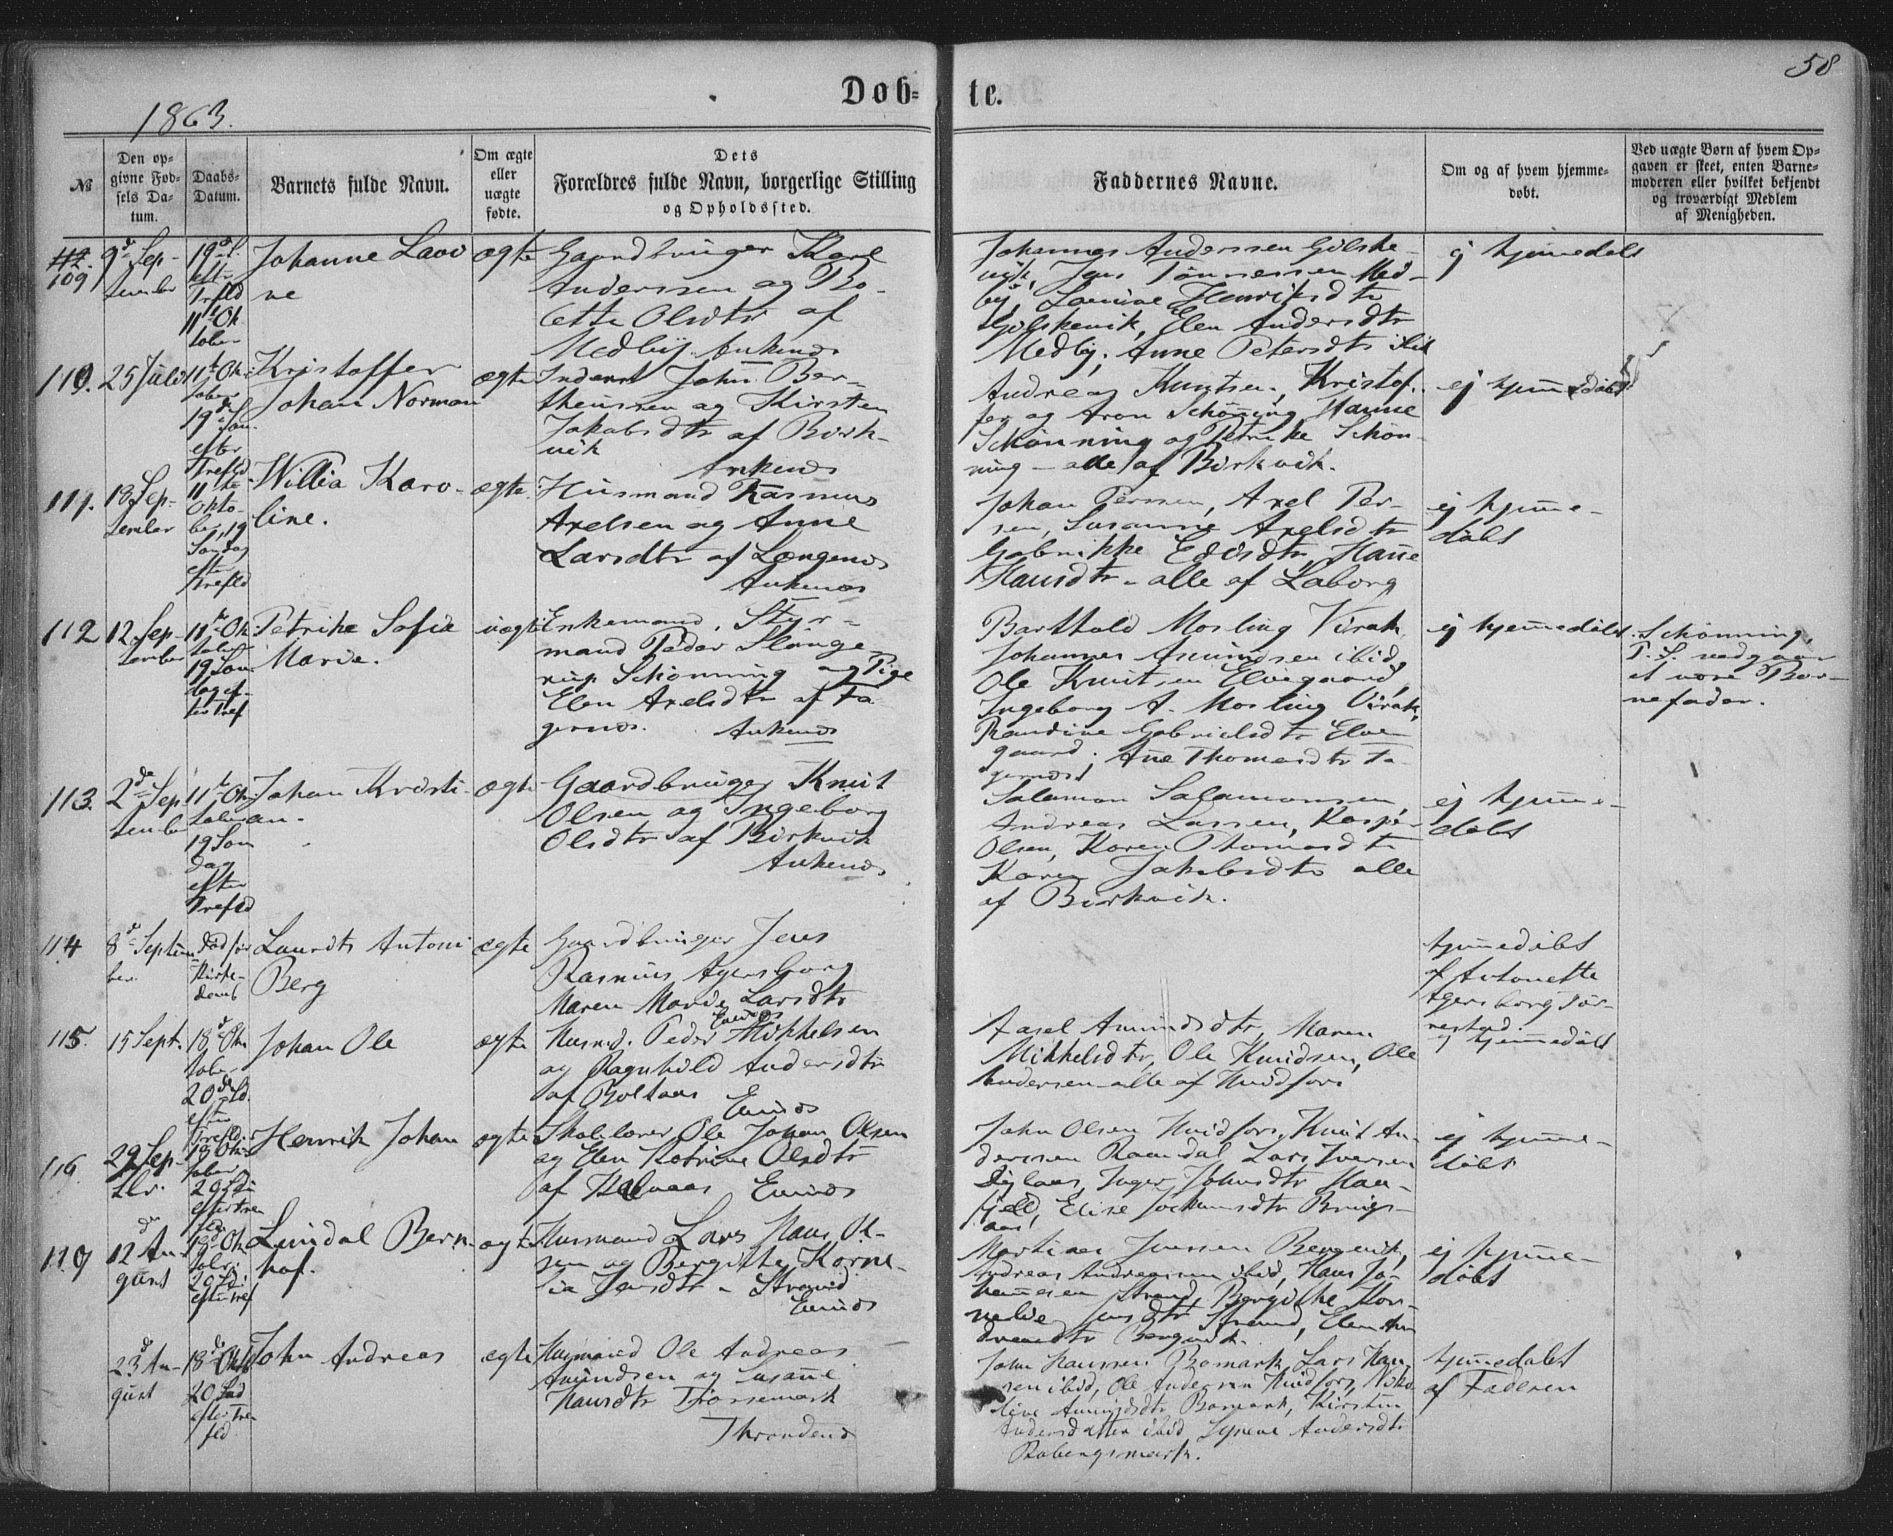 58
1863.
Døb-
te.
№
Den op-
givne Fød-
sels Da-
tum.
Daabs-
Datum.
Barnets fulde Navn.
Om ægte
eller
uægte
fødte.
Dets
Forældres fulde Navn, borgerlige Stilling
og Opholdssted.
Faddernes Navne.
Om og af hvem hjemme-
døbt.
Ved uægte Børn af hvem Op-
gaven er skeet, enten Barne-
moderen eller hvilket bekjendt
og troværdigt Medlem
af Menigheden.
109
9de Sep-
tember
19de S.
eft.
Trefld
11te Ok
tober
Johanne Lavi
ne
ægte
Gaardbruger Karl
Anderssen og Bo-
lette Olsdtr af
Medbÿ. Ankenes
Johannes Anderssen Gilske-
vik, Jens Tønnessen Med-
bÿ, Lavine Henriksdtr
Gilskevik, Elen Andersdtr
Medby, Anne Petersdtr ibid
ej hjemmedøbt
110.
25 Juli
11te Ok-
tober
19de Søn.
efter
Trefld.
Kristoffer
Johan Norman
ægte
Inderst John Ber-
theussen og Kirsten
Jakobsdtr af Birk-
vik
Ankenes
Andreas Knutsen, Kristof-
fer og Aron Schønning, Hanne
Schønning og Petrike Schøn-
ning – alle af Birkvik.
ej hjemmedøbt
111.
18 Sep-
tember
11te
Okto-
ber, 19
Søndag
eft.
Trefld
Willia Karo-
line.
ægte
Husmand Rasmus
Axelsen og Anne
Larsdtr af Længenes
Ankenes
Johan Perssen, Axel Per-
sen, Susanne Axelsdtr
Gabrikke Edisdtr, Hanne
Hansdtr – alle af Laborg
ej hjemme-
døbt
112
12 Sep-
tember
11te Ok
tober
19 Søn
dag ef-
ter Tref
Petrike Sofia
Marie.
uægte
Enkemand, Styr-
mand Peder Slange-
rup Schønning og Pige
Elen Axelsdtr af Fa-
gernes.
Ankenes
Barthold Mosling Virak,
Johannes Amundsen ibid,
Ole Knutsen Elvegaard,
Ingeborg A. Mosling Virak,
Randine Gabrielsdtr Elve-
gaard, Ane Thomasdtr Fa-
gernes
ej hjemmedøbt.
Schønning,
P. S. vedgaar
at være Bar-
nefader.
113.
2de Sep
tember
11te Ok-
tober
19 Søn
dag
efter
Trefld
Johan Kristi-
an.
ægte
Gaardbruger Knut
Olsen og Ingeborg
Olsdtr af Birkvik
Ankenes
Salamon Salamonsen,
Andreas Lassen, Kasper
Olsen, Karen Thomasdtr
Karen Jakobsdtr alle
af Birkvik.
ej hjemme-
døbt
114
8de Septem
ber.
død før
Kirke-
daab
Laurits Antoni
Berg
ægte
Gaardbruger Jens
Rasmus Agersborg
Maren Marie Larsdtr
Evenes
hjemmedøbt
af Antonette
Agersborg Tør-
restad.
115.
15 Sept.
18de Ok
tober
20de Sd.
efter
Trefld.
Johan Ole
ægte
Husmd. Peder Mikkelsen
og Ragnhild Andersdtr
af Boltaas
Evenes
Aasel Amundsdtr, Maren
Mikkelsdtr, Ole Knudsen, Ole
Andersen – alle af Hvidfors
ej hjemmedøbt
116.
29 Sep-
tbr.
18 Ok-
tober
20 Sd
efter Tre
fld
Henrik Johan
ægte
Skolelærer Ole Johan Olsen
og Elen Katrine Olsdtr
af Kalvaas Evenes
John Olsen Hvidfors, Knut An-
derssen Raandal, Lars Iversen
Dylaas, Inger Johnsdtr Hau-
fjeld, Elise Jochumsdtr Brings-
aas
ej hjemme-
døbt
119
12de Au-
gust
18de Ok
tober
20 Sd
efter Tref
Lundal Bern-
hof.
ægte
Husmand Lars Hans Ol-
sen og Bergitte Korne-
lia Jensdtr – Strand
Evenes
Martines Jenssen Bergvik,
Andreas Andreassen ibid, Hans Jo-
hannesen Strand, Bergithe Kor-
nelie Jensdtr Strand, Elen An
dreasdtr Bergvik.
ej hjemme-
døbt
23de Au-
gust
18de Okt
20 Sød
efter Tre
fld
John Andreas
ægte
Husmand Ole Andreas
Amundsen og Susanne
Hansdtr Trøssemark
Throndenes
John Hanssen Bomark, Lars Han-
sen ibid, Ole Andersen Hvidfors, Niko
line Amundsdtr Bomark, Kirsten
Andersdatter ibid, Lyvene Andersdtr
Bobergsmark.
hjemmedøbt
af Faderen